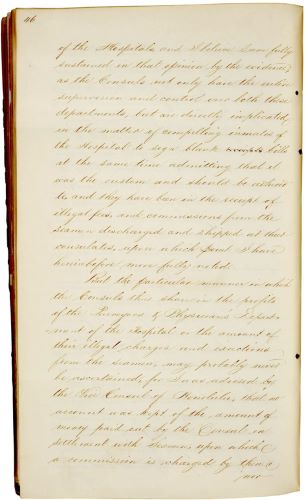 46
of the Hospitals and I believe I am fully
sustained in that opinion by the evidence,
as the Consuls not only have the entire
supervision and control over both these
departments, but are directly implicated,
in the matter of compelling inmates of
the Hospital to sign blank receipts bills
at the same time admitting that it
was the custom and should be
and they have been in the receipt of
illegal fees, and commissions from the
seamen discharged and shipped at their
consulates, upon which point I have
hereinbefore more fully noted.
But the particular manner in which
the Consuls thus share in the profits
of the Purveyors & Physicians Depart-
ment of the Hospital or the amount of
their illegal charges and exactions
from the seamen, may probably never
be ascertained, for I was advised by
the Vice Consul of Honolulu, that no
account was kept of the amount of
money paid out by the Consul in
settlement with Seamen upon which
a commission is charged by them
nor